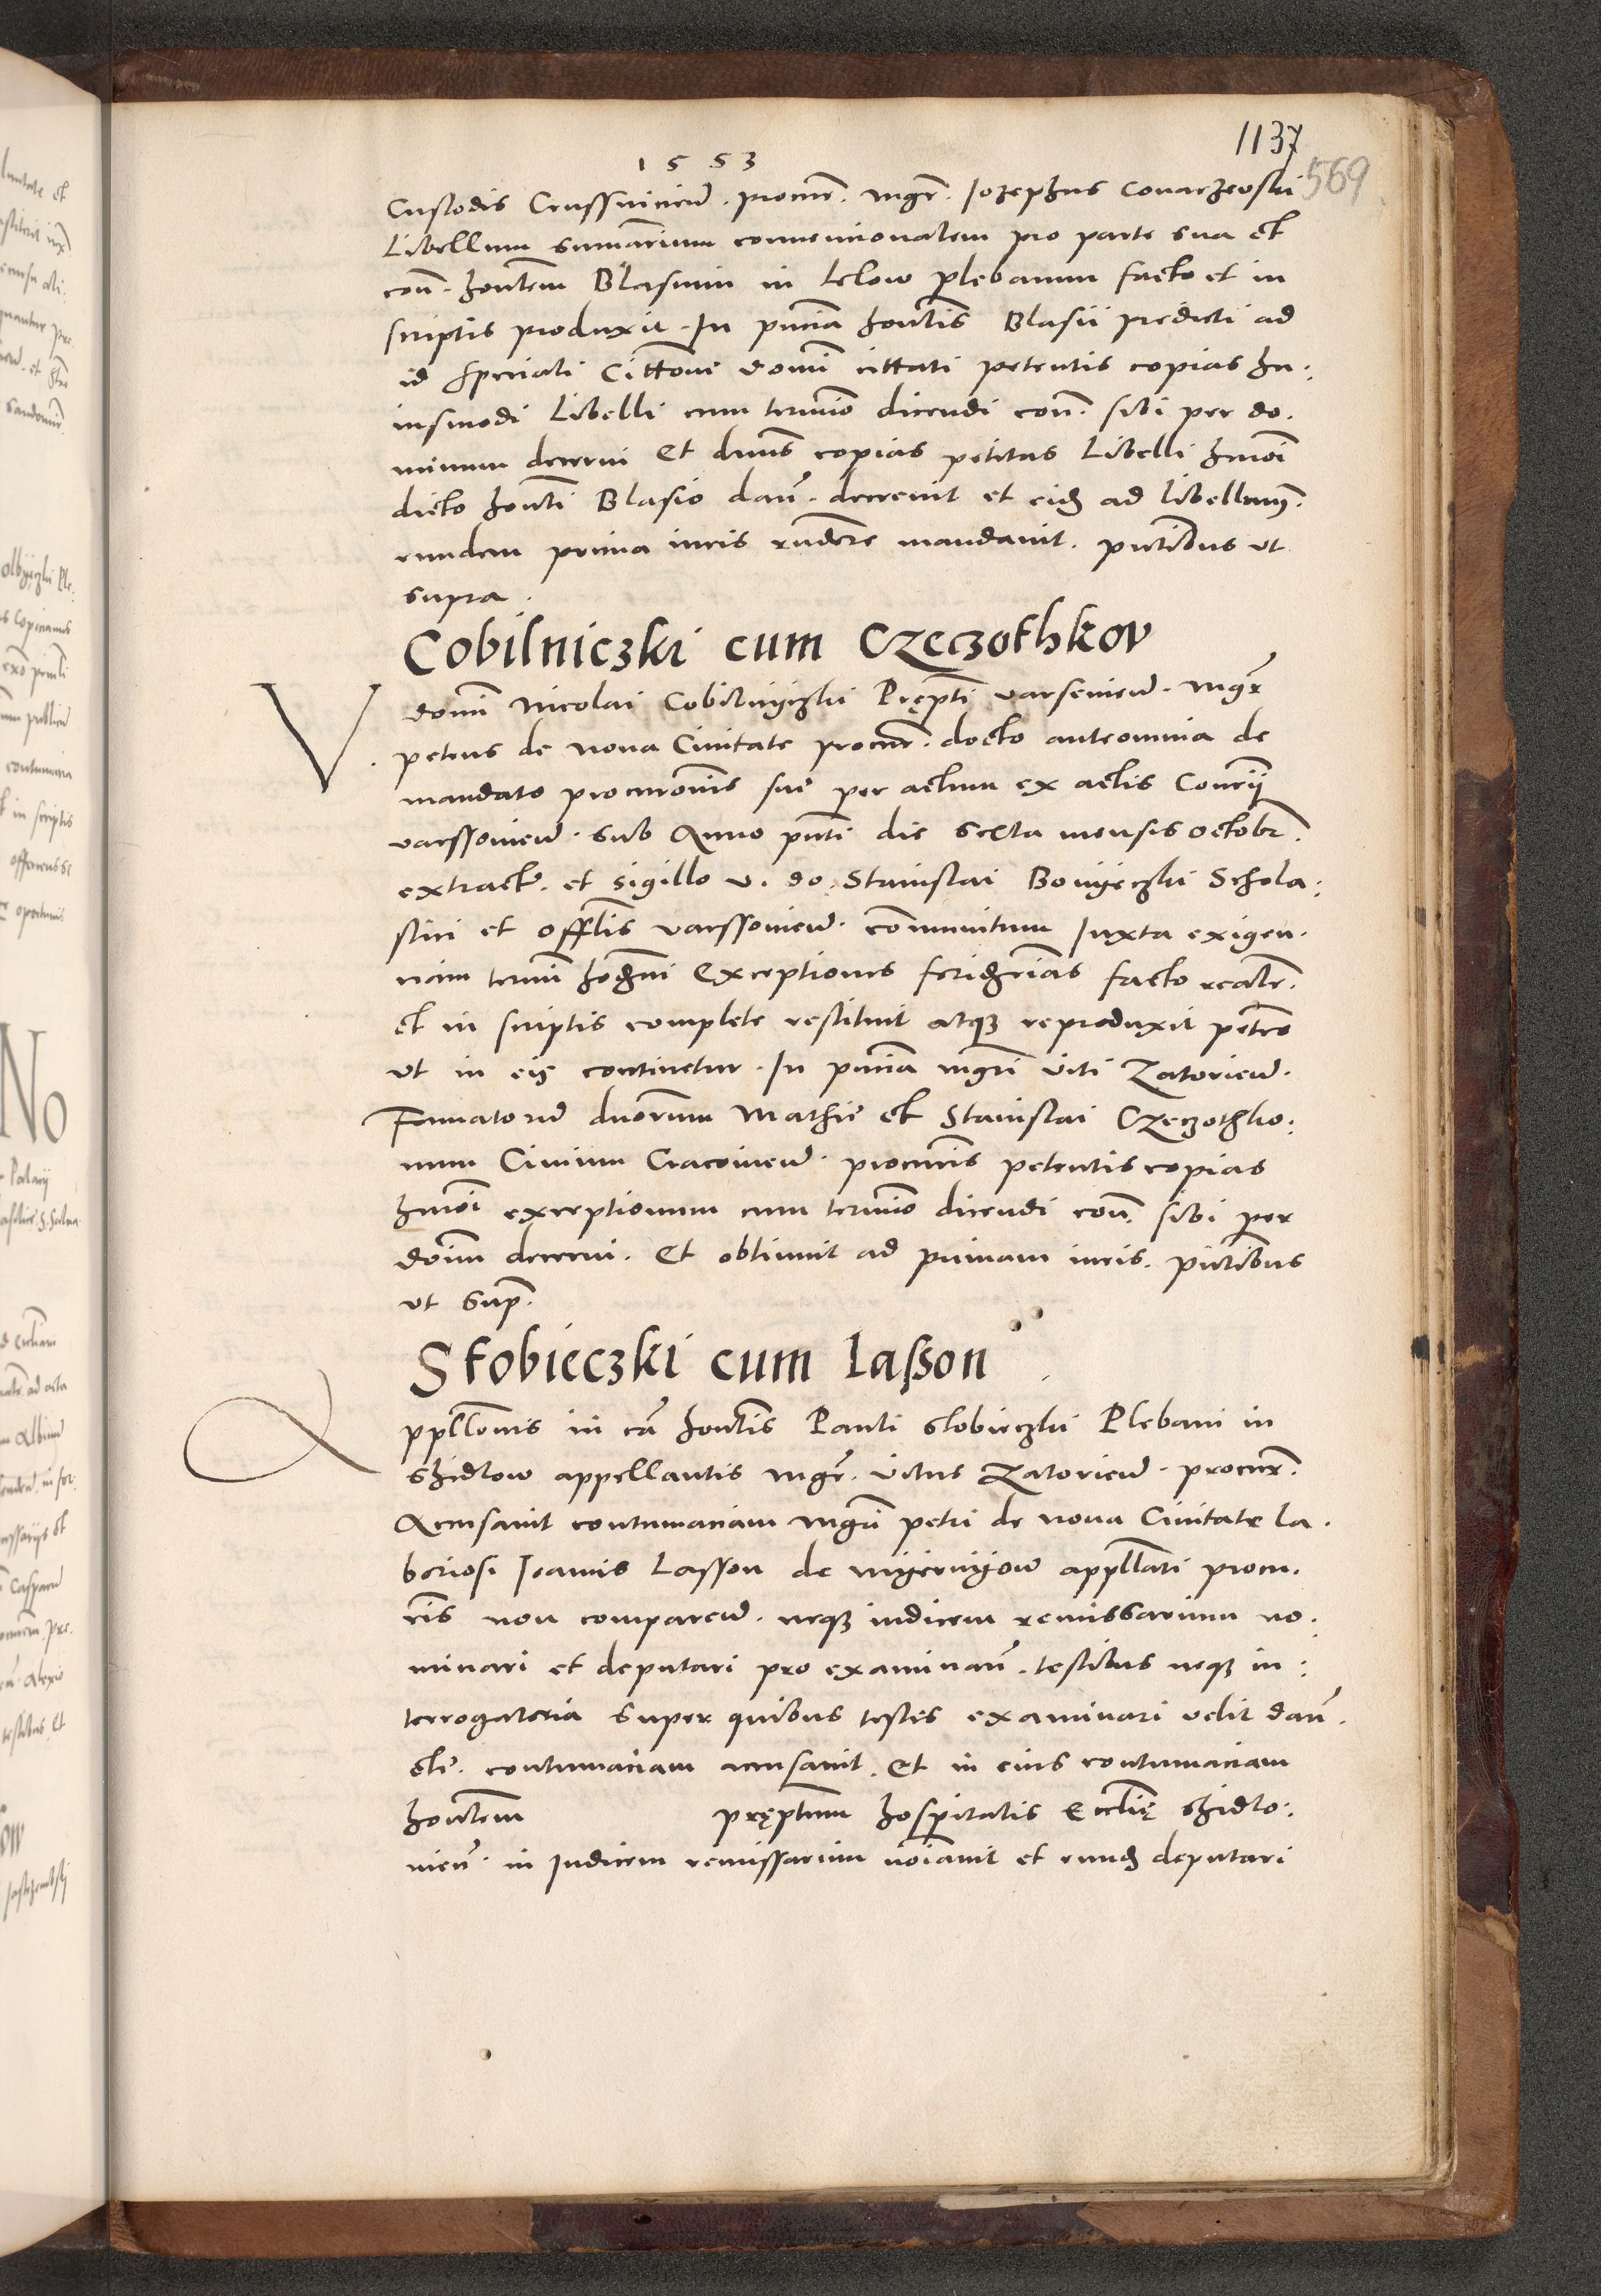 1137
1553
569
Custodis Crusswicien̄. procur̄. mgr̄. Jozephus Covarzewski
Libellum sum̄arium conuencionalem pro parte sua et
con̄. hon̄tem Blasium in Lelow plebanum facto et in
scriptis produxit. In pn̄cia hon̄tis Blasii predicti ad
id speciali Citt̄oni domi cittati petentis copias hu:
iusmodi Libelli cum termīo dicendi con̄. sibi per do.
minum decerni Et dn̄us copias petitas Libelli hmōi
dicto hon̄ti Blasio dan̄. decreuit et eidꝫ ad libellum
eundem prima iuris rn̄dere mandauit. pn̄tibus vt
supra.
Cobilniczki cum Czeczothkow
V. domī Nicolai Cobilnyczki Pręp̄ti varseuien̄. Mgr̄
petrus de noua Ciuitate procur̄. docto anteomnia de
mandato procurōnis suę per actum ex actis Con̄rij
varssouien̄. sub Anno pn̄ti die sexta mensis octobr̄.
extract̄. et sigillo v. do. Stanislai Boniieczki Schola:
stici et offlis varssouien̄. com̄unitum Juxta exigen.
ciam termī hodn̄i Exceptiones feridicias facto realr̄.
et in scriptis complete restituit atqꝫ reproduxit petēs
vt in eis continetur. In pn̄cia mgr̄i viti Zatorien̄.
Famatorū duorum Mathię et Stanislai Czeczothko:
num Ciuium Cracouien̄. procur̄is petentis copias
hmōi exceptionum cum termīo dicendi con̄. sibi per
doīm decerni. Et obtinuit ad primam iuris. pn̄tibus
vt supr̄.
Stobieczki cum Lasson
Appll̄onis in cā hon̄tis Pauli stobieczki Plebani in
shidlow appellantis mgr̄. vitus Zatorien̄. procur̄.
Accusauit contumaciam mgr̄i petri de noua Ciuitate la.
boriosi Joannis Lasson de appll̄ati procu.
r̄is non comparen̄. neqꝫ iudicem remissarium no.
minari et deputari pro examinan̄. testibus neqꝫ in:
terrogatoria super quibus testes examinari velit dan̄.
etc̄. contumaciam accusauit. Et in eius contumaciam
hon̄tem pręp̄tum hospitalis Ecclīę shidlo:
uien̄. in Judicem remissarium noīauit et eundꝫ deputari